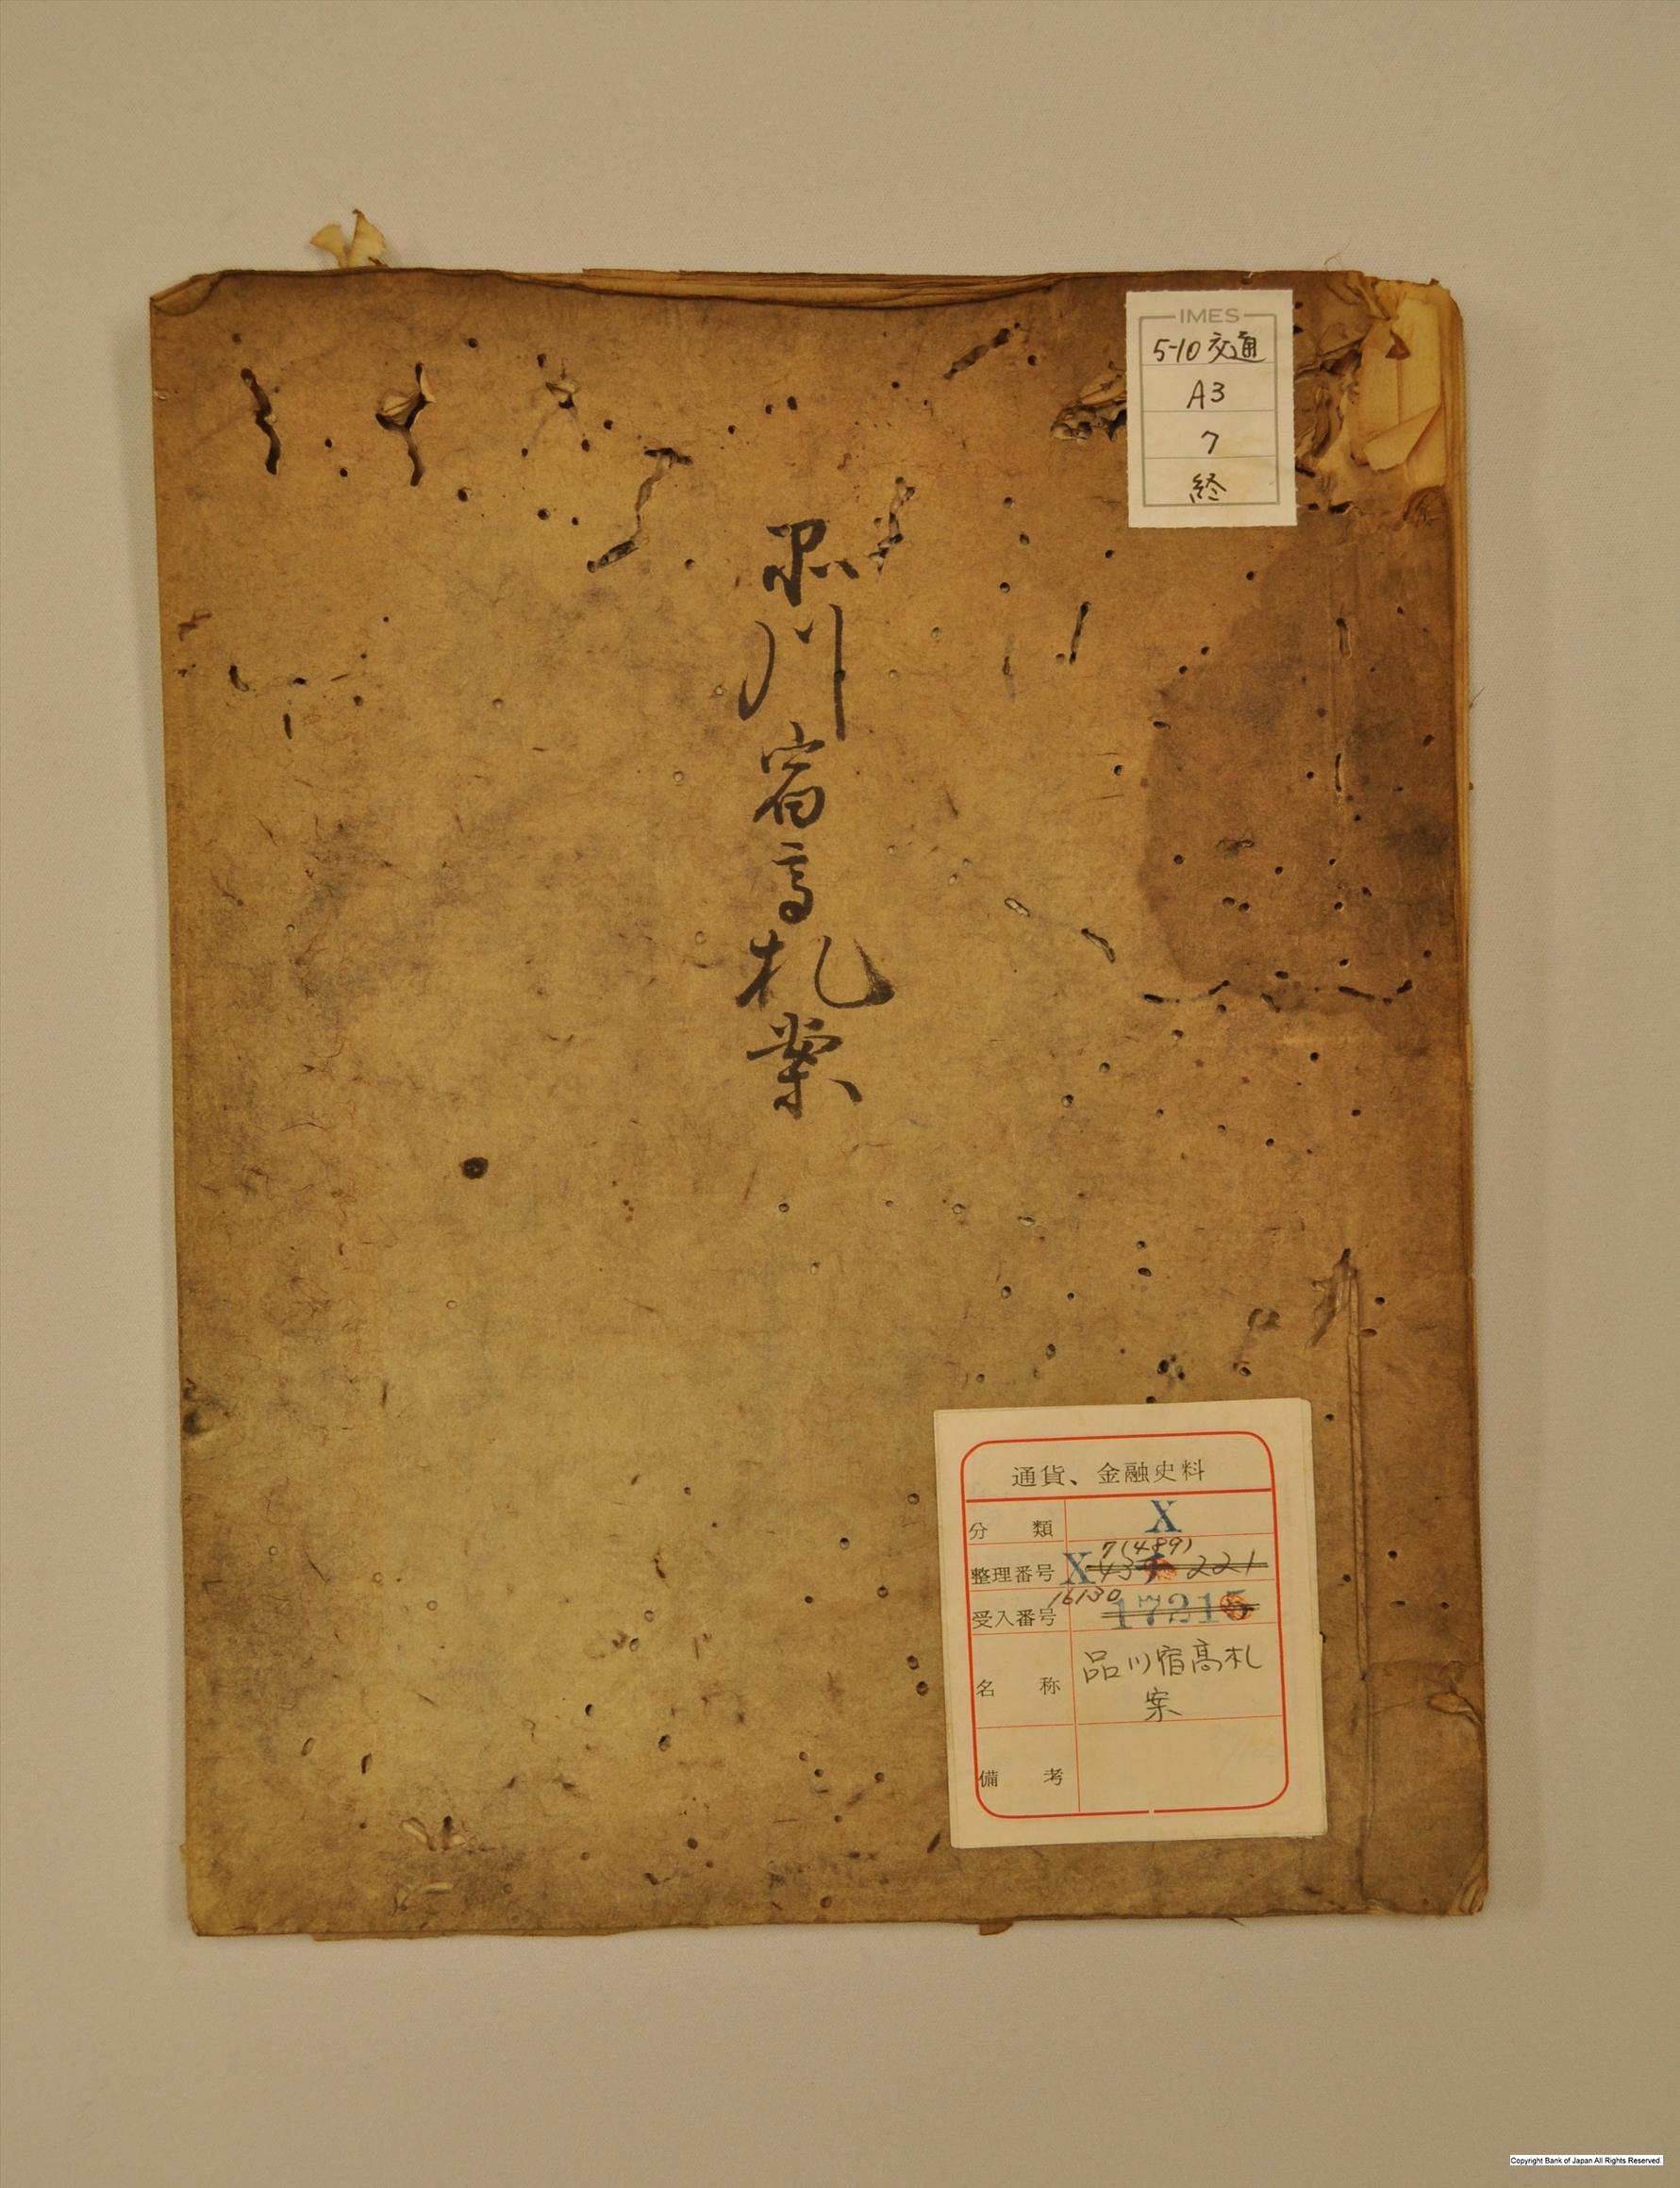 品川宿高札案
IMES
5-10交通
A3
7
終
通貨、金融史料
分類 X
7(489)
整理番号 X 43 221
16130
受入番号 17215
名称 品川宿高札
案
備考
Copyright Bank of Japan All Rights Reserved.